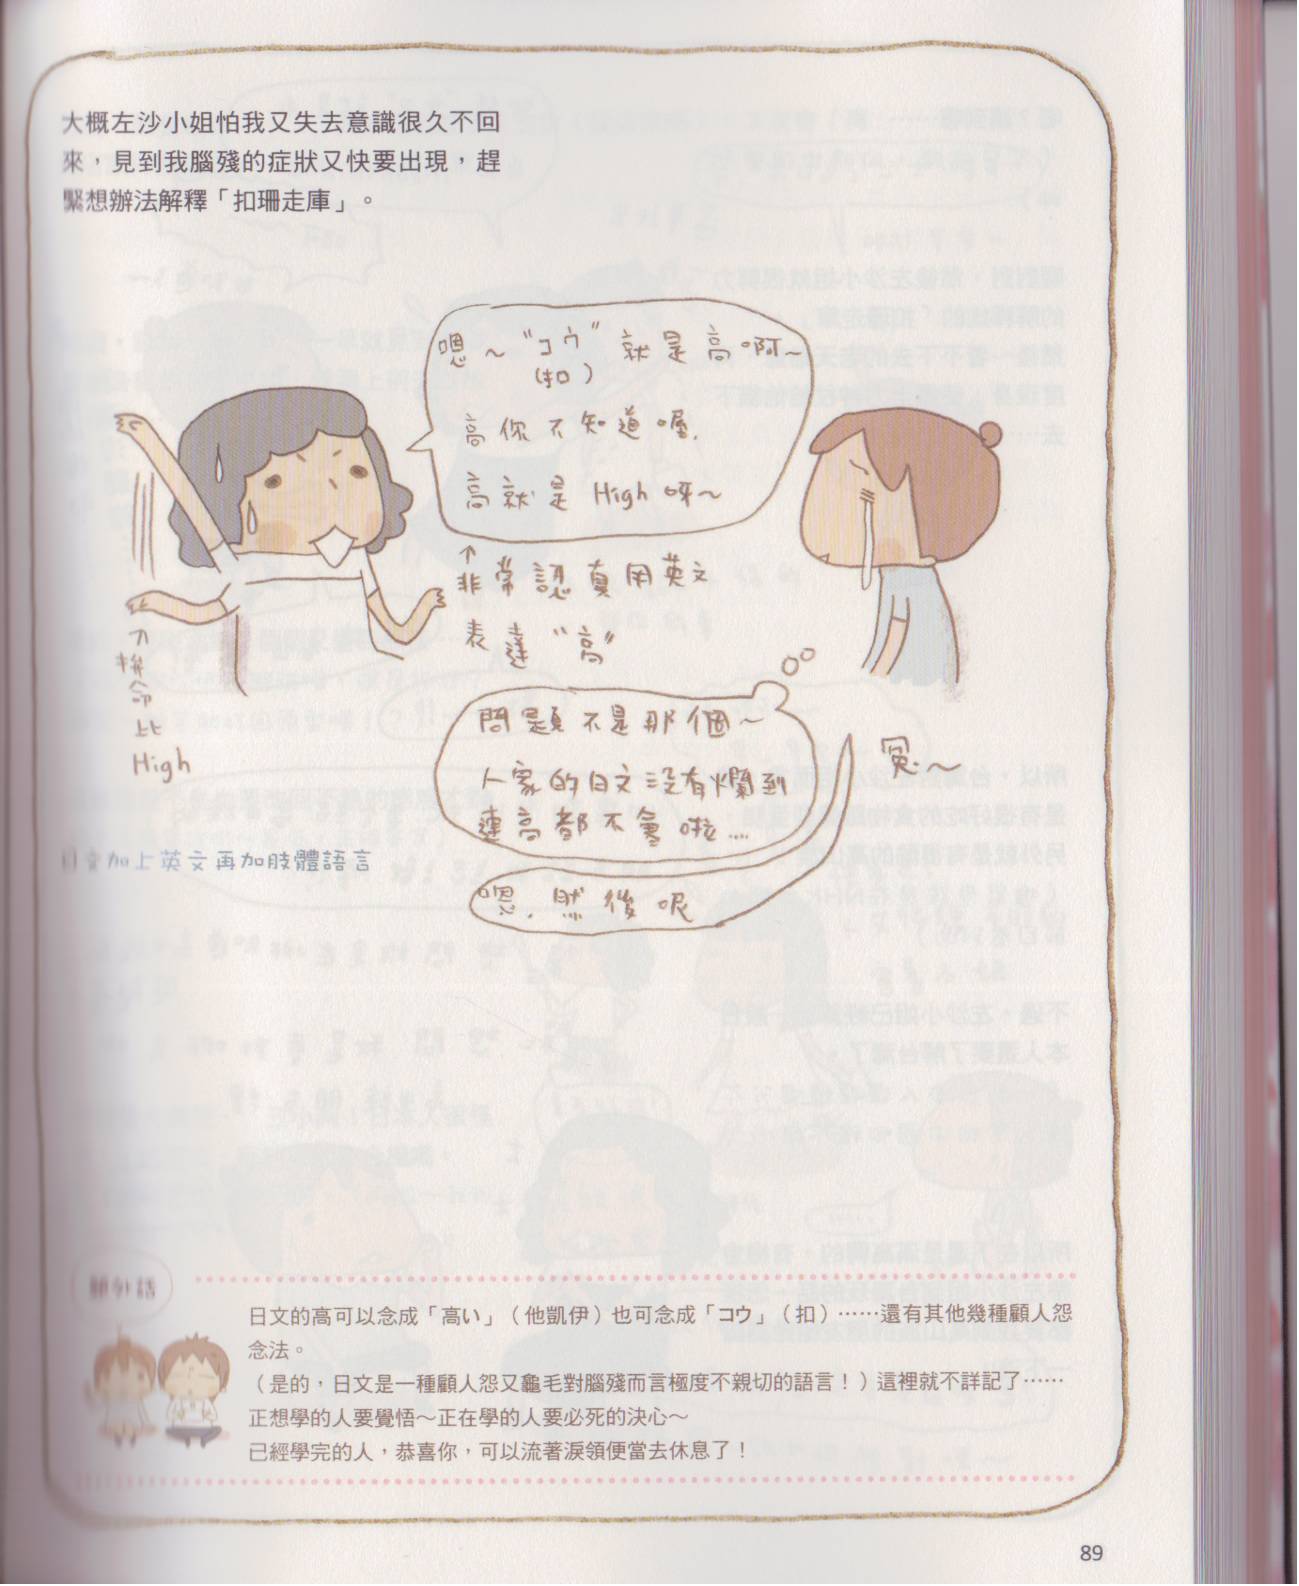 大概左沙小姐怕我又失去意識很久不回
來，見到我腦殘的症狀又快要出現，趕
緊想辦法解釋「扣珊走庫」。
嗯～“コウ”就是高啊～
（扣）
高你不知道喔，
高就是 High 呀～
↑
非常認真用英文
表達“高”
拼命比
High
問題不是那個～
人家的日文沒有爛到
連高都不會啦….
冤～
嗯，然後呢
日文加上英文再加肢體語言
題外話
日文的高可以念成「高い」（他凱伊）也可念成「コウ」（扣）……還有其他幾種顧人怨
念法。
（是的，日文是一種顧人怨又龜毛對腦殘而言極度不親切的語言！）這裡就不詳記了……
正想學的人要覺悟～正在學的人要必死的決心～
已經學完的人，恭喜你，可以流著淚領便當去休息了！
89